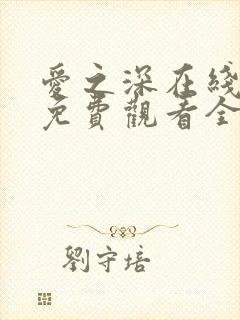 愛之深在綫
免費觀看全
劉守培